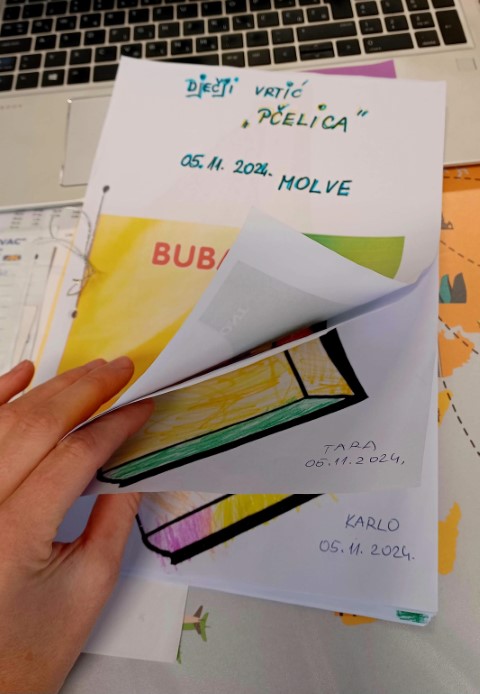 Dječji vrtić
„Pčelica“
05.11.2024. MOLVE
BUBA
TARA
05.11.2024.
KARLO
05.11.2024.